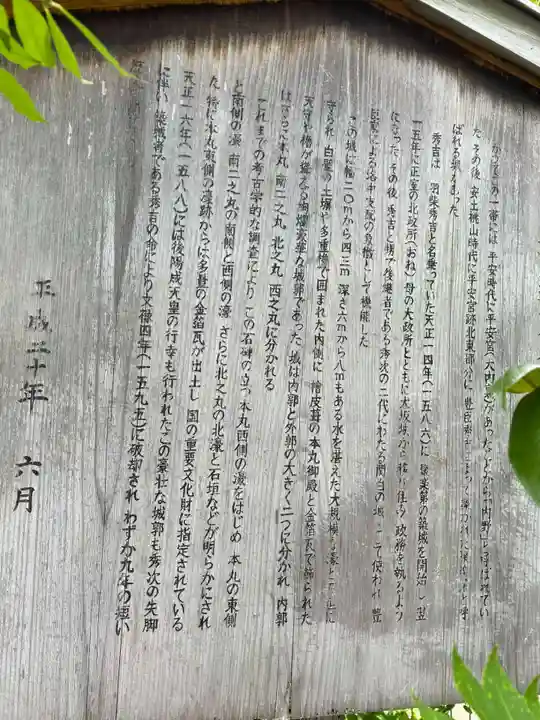 かつてこの一帯には 平安時代に平安宮(大内裏)があったことから「内野」と呼ばれてい
た その後 安土桃山時代に平安宮跡北東部分に 豊臣秀吉によって築かれた
ばれる城であった
秀吉は 羽柴秀吉と名乗っていた天正一四年(一五八六)に 聚楽第の築城を開始し 翌
一五年に正室の北政所(おね) 母の大政所とともに大坂城から移り住み 政務を執るよう
になった その後 秀吉と甥で後継者である秀次の二代にわたる関白の城として使われ 豊
臣家による洛中支配の象徴として機能した
この城は幅二〇mから四三m 深さ六mから八mもある水を湛えた大規模な濠と石垣に
守られ 白壁の土塀や多重櫓で囲まれた内側に 檜皮葺の本丸御殿と金箔瓦で飾られた
天守や櫓が聳える絢爛豪華な城郭であった 城は内郭と外郭の大きく二つに分かれ 内郭
はさらに本丸 南二之丸 北之丸 西之丸に分かれる
これまでの考古学的な調査により この石碑の立つ本丸西側の濠をはじめ 本丸の東側
と南側の濠 南二之丸の南側と西側の濠 さらに北之丸の北濠と石垣などが明らかにされ
た 特に本丸東側の濠跡からは多量の金箔瓦が出土し 国の重要文化財に指定されている
天正一六年(一五八八)には後陽成天皇の行幸も行われたこの豪壮な城郭も秀次の失脚
に伴い 築城者である秀吉の命により文禄四年(一五九五)に破却され わずか九年の短い
平成二十年 六月